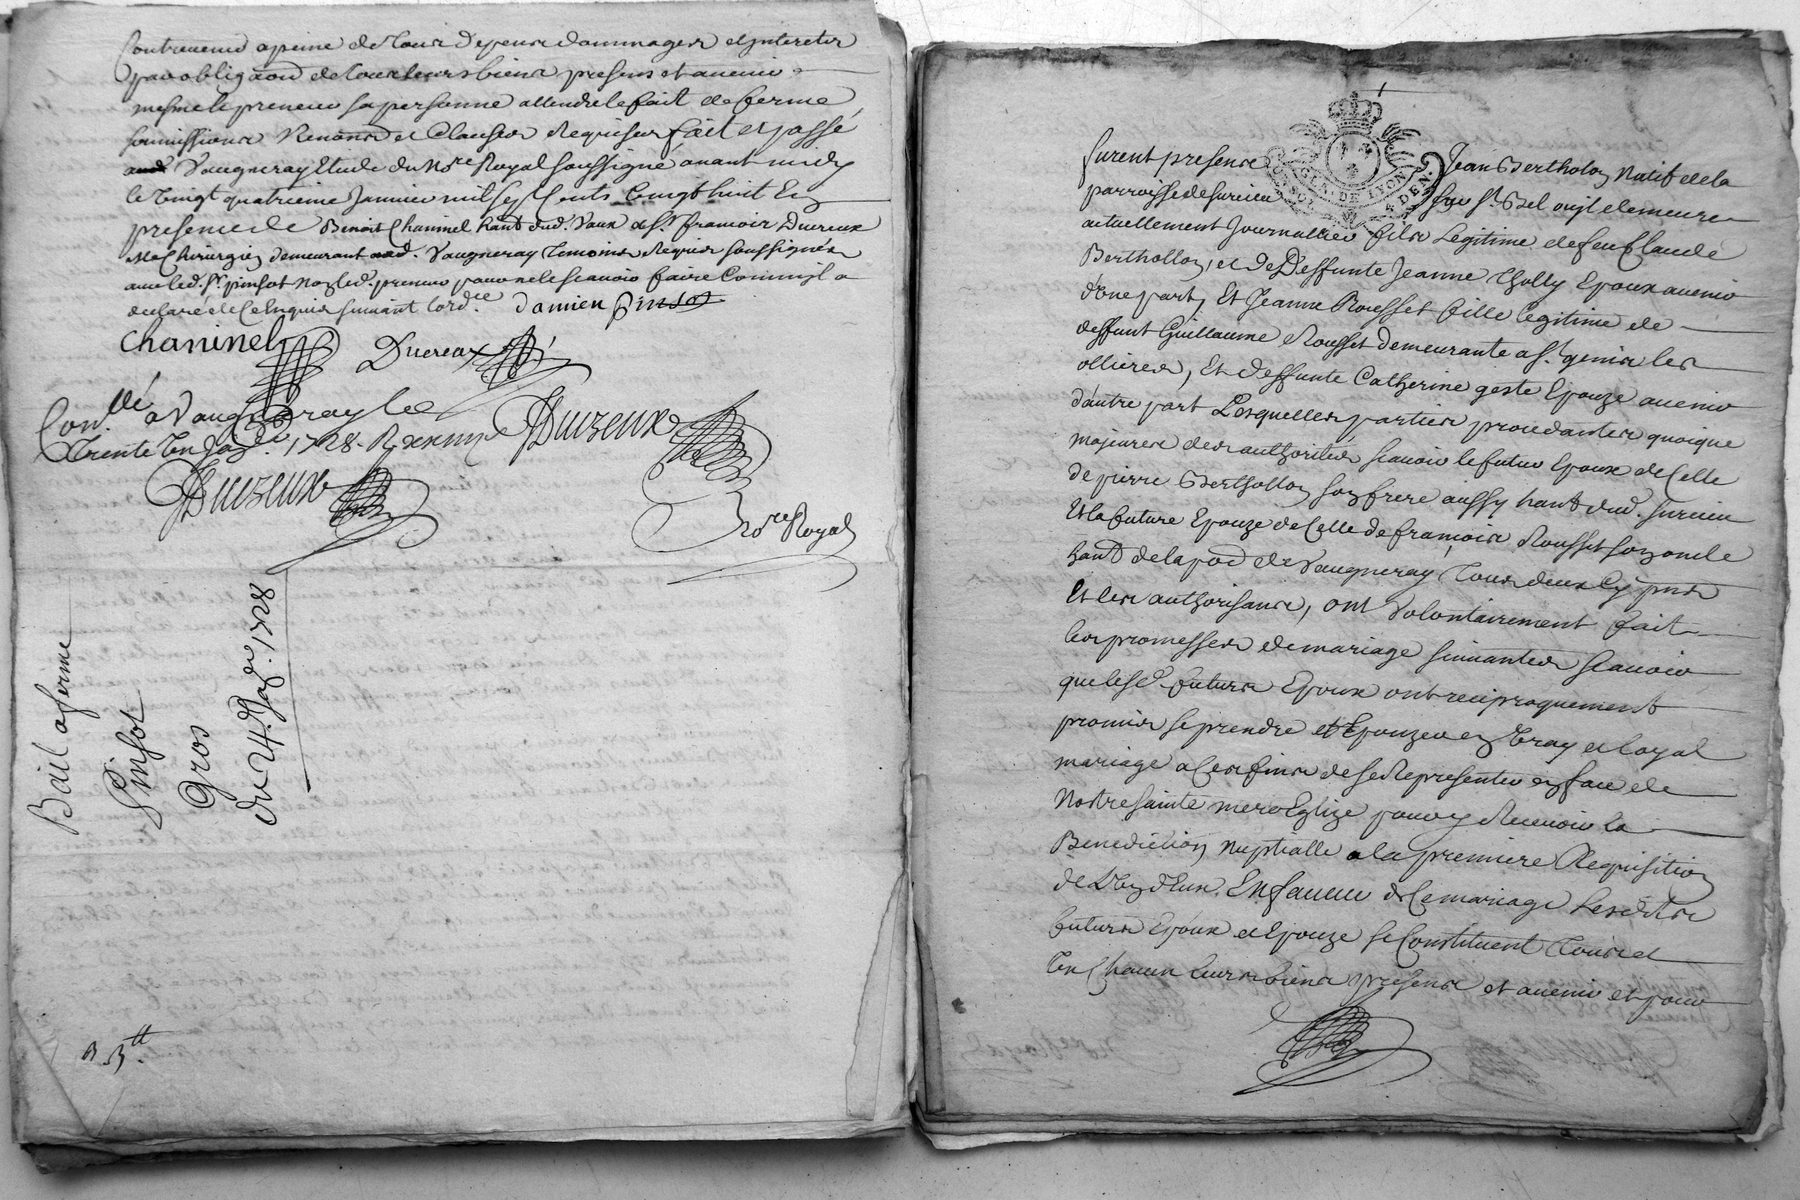 Contrevenir a peine de tous depens dommages et interets
par obligaōn de tous leurs biens presens et avenir
mesme le preneur sa personne attendu le fait de ferme
soumissions Renonōns et Clauses Requises fait et passé
aud Vaugneray Etude du No.re Royal soussigné avant midy
le vingt quatrieme Janvier mil sept cents vingt huit En
presence de Benoit Chaninel hant dud. Vaux et S.r francois Ducreux
M.e Chirurgien demeurant aud. Vaugneray Temoins Requis soussignés
avec led. S.r pinsot non led. preneur pour ne le scavoir faire Comme il a
declaré de Ce Enquis suivant lord.ce damien pinsot
Chaninel Ducreux
Con.lé a Vaugneray le
Trente Un Ja.er 1728. R
Duizeux
Duizeux
no.re Royal
Bail a ferme
Pinsot
Gros
du 24. Ja.er 1728
R 3.tt
GEN. DE LYON
furent presens Jean Bertholon Natif de la
parroisse de surcieu sur S.t Bel ou il demeure
actuellement Journallier fils Legitime de feu Claude
Berthollon, et de Deffunte Jeanne Tholly Epoux avenir
d'une part, Et Jeanne Rousset fille legitime de
deffunt Guillaume Rousset demeurante a S.t genis les
ollieres, Et deffunte Catherine geste Epouze avenir
d'autre part Lesquelles parties procedantes quoique
majeures des authorités scavoir le futur Epoux de Celle
de pierre Berthollon son frere aussy hant dud. surcieu
Et la future Epouze de Celle de francois Rousset son oncle
hant de la pād de Vaugneray Tous deux Cy pnts
Et les authorisans, ont Volontairement fait
les promesses de mariage suivantes scavoir
que lesd. futurs Epoux ont reciproquement
promis se prendre et Epouzer en vray et loyal
mariage a Ces fins de se Representer en face de
Nostre sainte mere Eglize pour y Recevoir la
Benediction Nuptialle a la premiere Requisition
de L'un d'Eux. En faveur de Ce mariage Lesdits
futurs Epoux et Epouze se Constituent Tous et
Un Chacun Leurs biens presens et avenir et pour